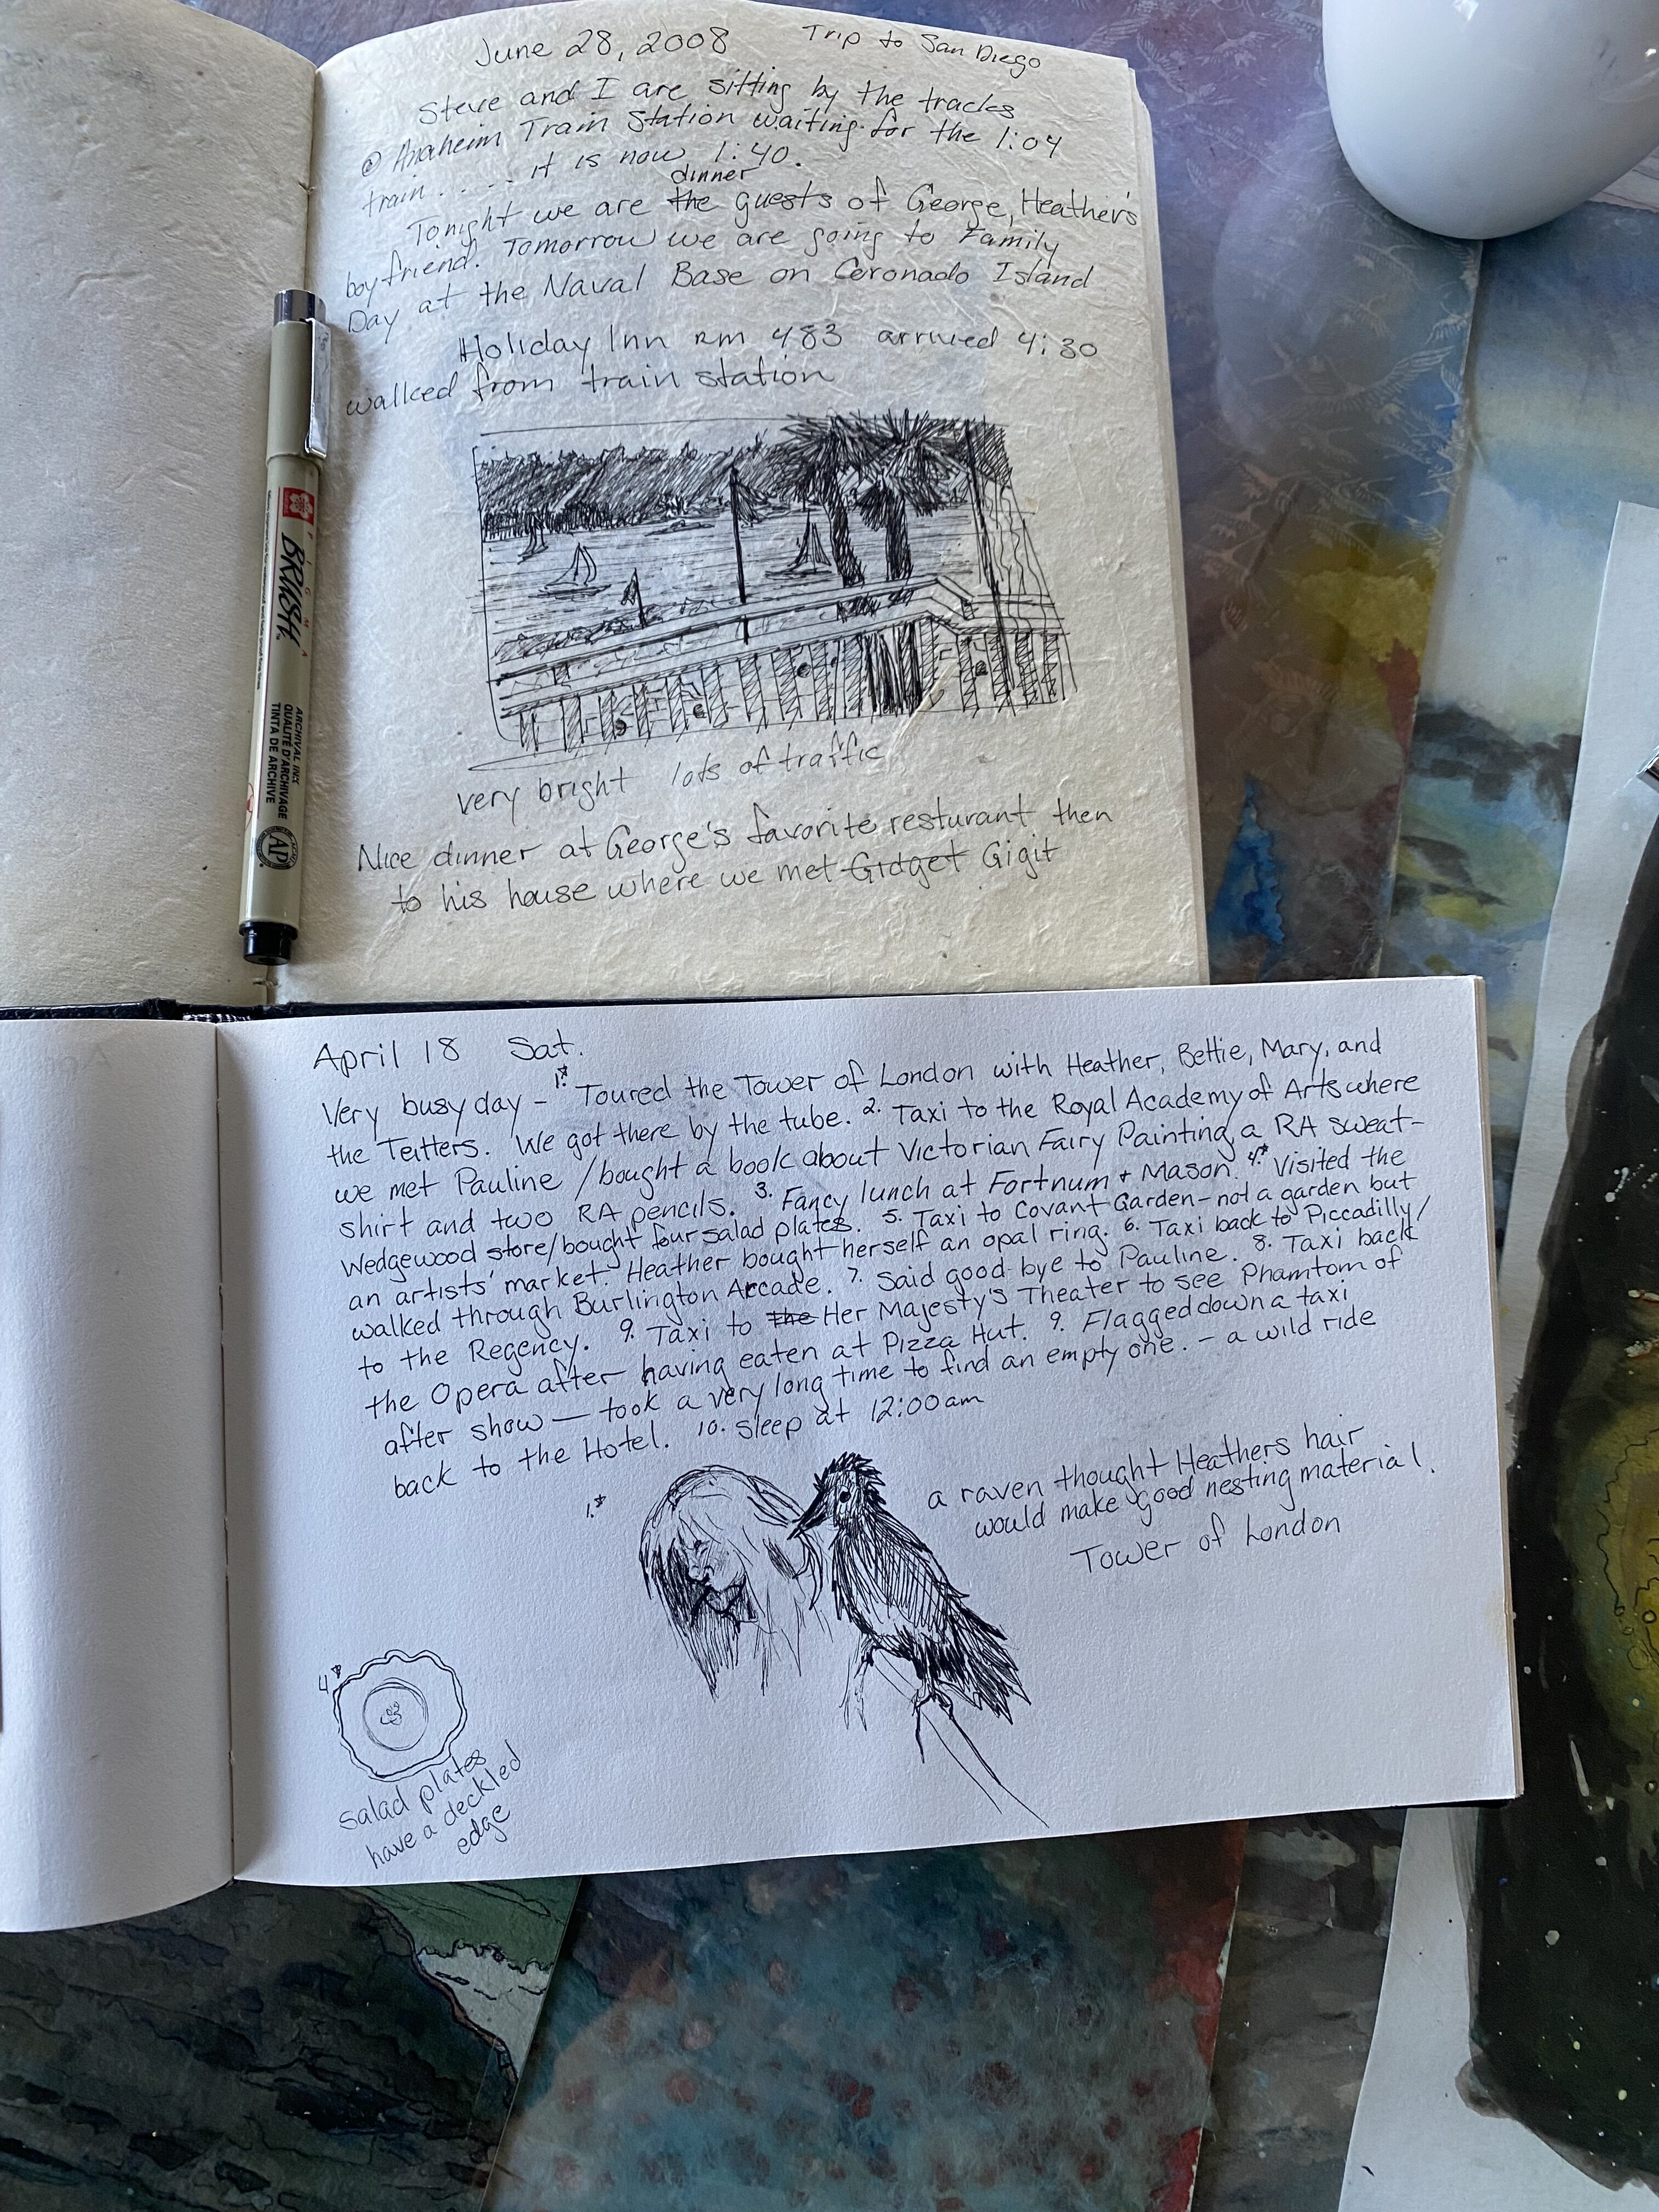 June 28, 2008 Trip to San Diego
Steve and I are sitting by the tracks
@ Anaheim Train Station waiting for the 1:04
train . . . . . it is now 1:40.
dinner
Tonight we are the guests of George, Heather's
boyfriend. Tomorrow we are going to Family
Day at the Naval Base on Coronado Island
Holiday Inn rm 483 arrived 4:30
walked from train station
very bright lots of traffic
Nice dinner at George's favorite resturant then
to his house where we met Gidget Gigit
BRUSH
ARCHIVAL INK
QUALITÉ D'ARCHIVAGE
TINTA DE ARCHIVE
AP
April 18 Sat.
Very busy day - 1.* Toured the Tower of London with Heather, Bettie, Mary, and
the Tetters. We got there by the tube. 2. Taxi to the Royal Academy of Arts where
we met Pauline / bought a book about Victorian Fairy Painting, a RA sweat-
shirt and two RA pencils. 3. Fancy lunch at Fortnum + Mason. 4.* Visited the
Wedgewood store/bought four salad plates. 5. Taxi to Covant Garden - not a garden but
an artists' market. Heather bought herself an opal ring. 6. Taxi back to Piccadilly/
walked through Burlington Arcade. 7. Said good-bye to Pauline. 8. Taxi back
to the Regency. 9. Taxi to the Her Majesty's Theater to see Phamtom of
the Opera after having eaten at Pizza Hut. 9. Flagged down a taxi
after show — took a very long time to find an empty one. - a wild ride
back to the Hotel. 10. sleep at 12:00 am
1.*
a raven thought Heathers hair
would make good nesting material.
Tower of London
4*
salad plates
have a deckled
edge